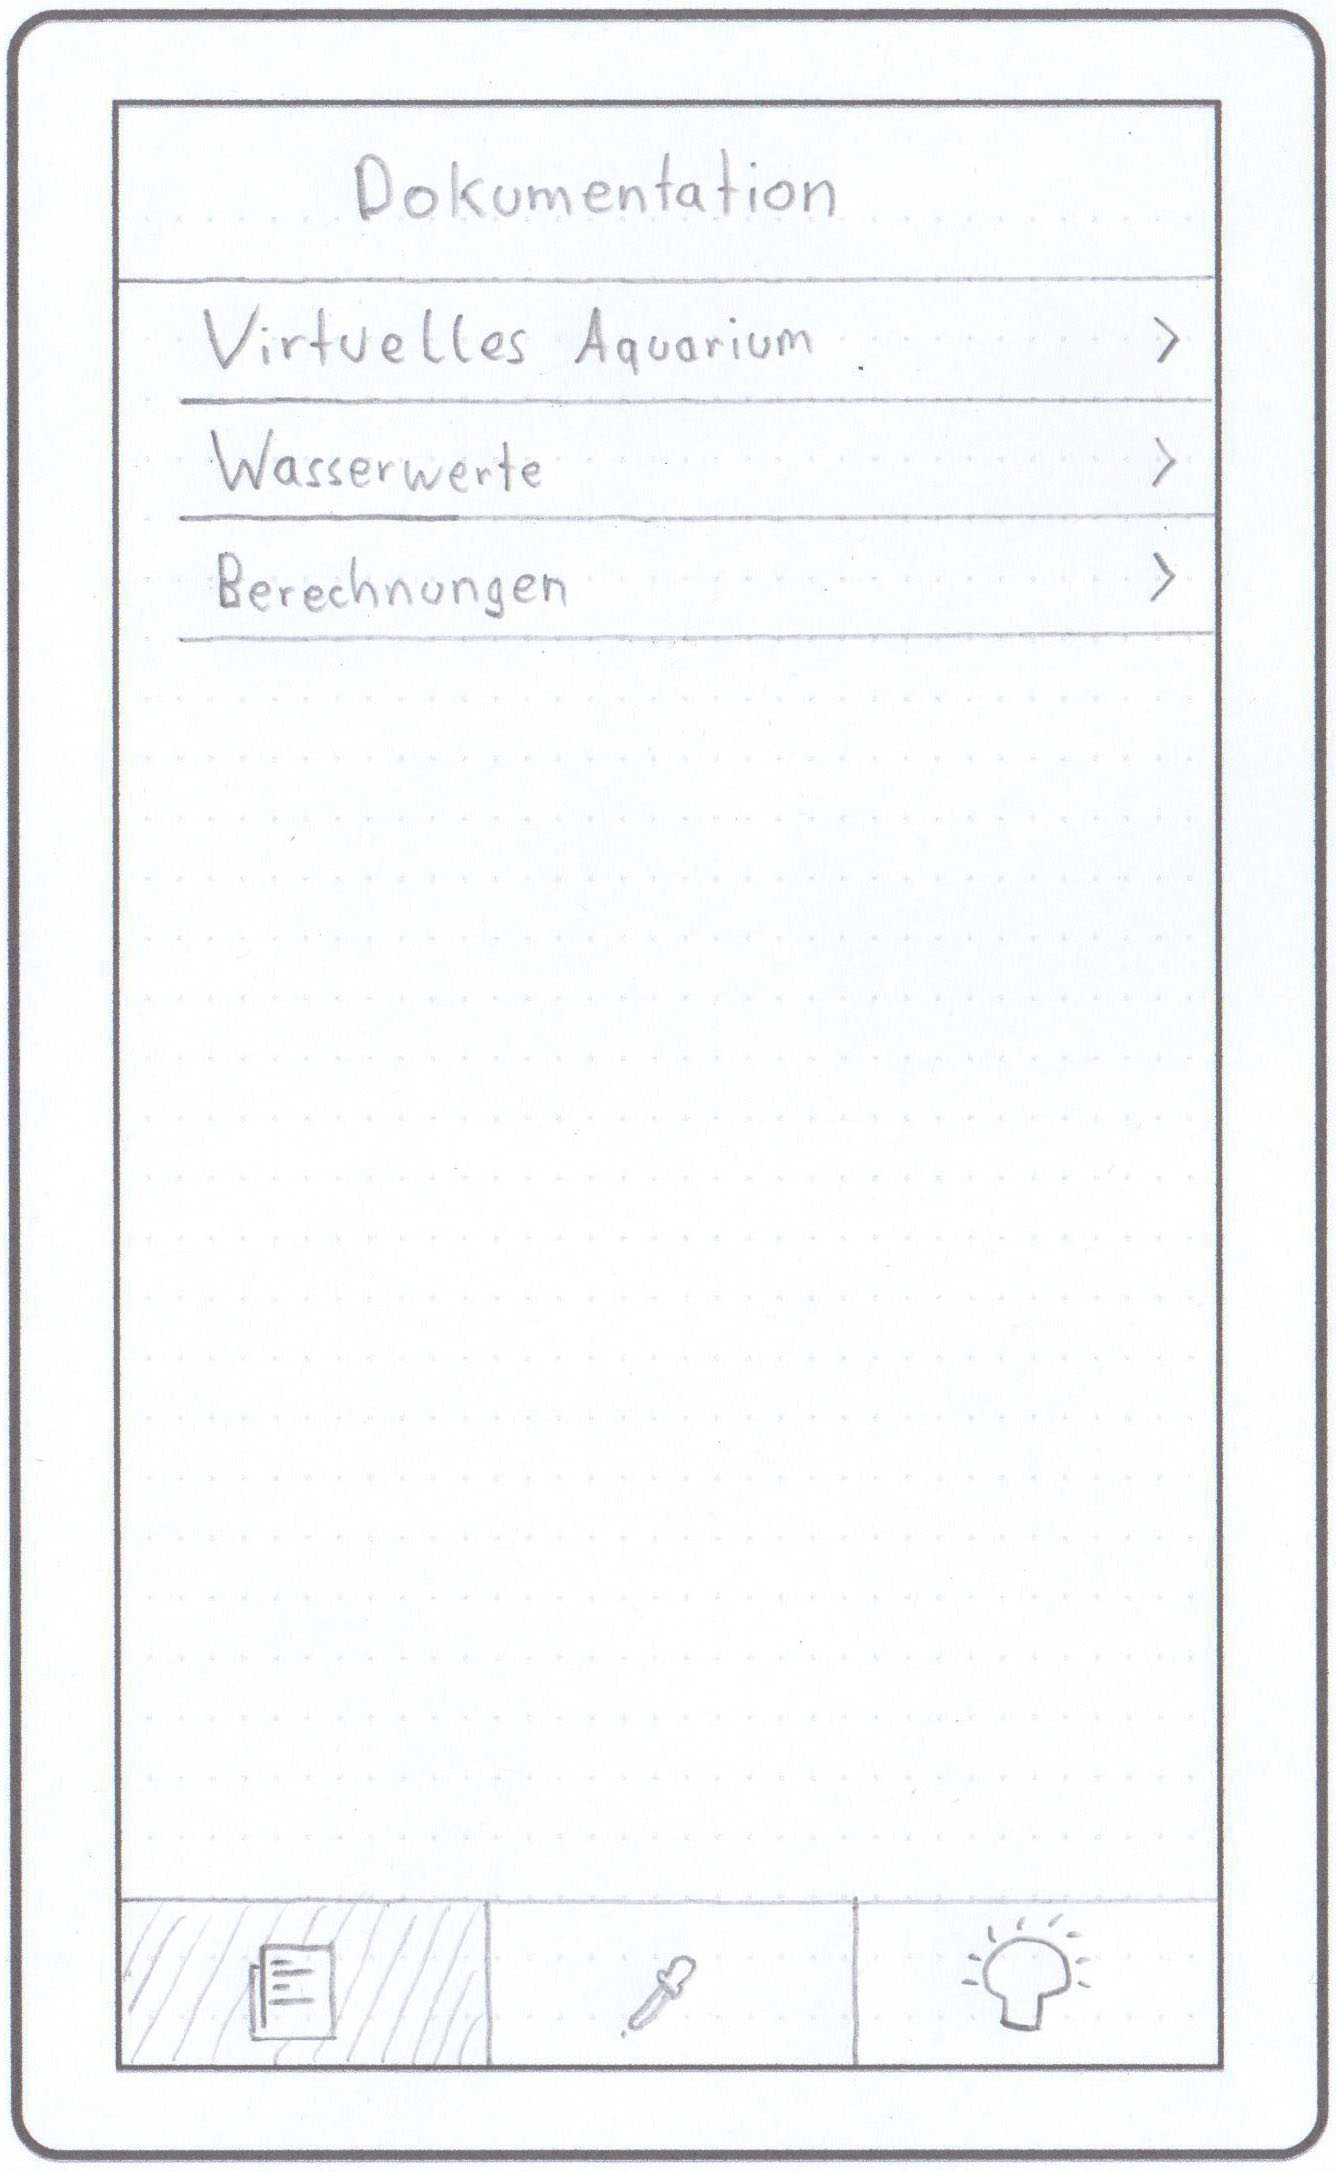 Dokumentation
Virtuelles Aquarium
Wasserwerte
Berechnungen